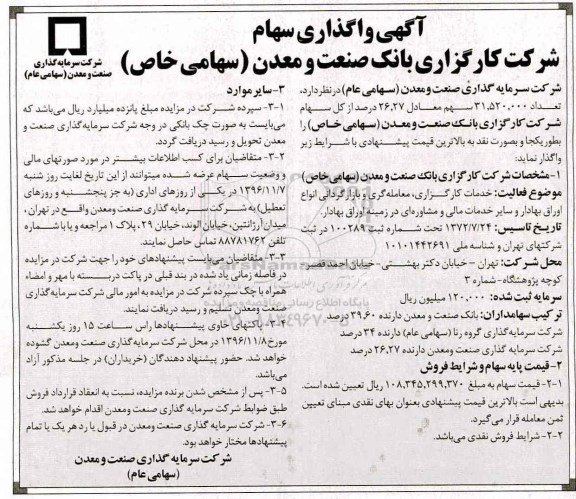 آگهی واگذاری سهام
شرکت کارگزاری بانک صنعت و معدن (سهامی خاص)
شرکت سرمایه گذاری
صنعت و معدن (سهامی عام)
شرکت سرمایه گذاری صنعت و معدن (سهامی عام) در نظر دارد،
تعداد ۳۱,۵۲۰,۰۰۰ سهم معادل ۲۶.۲۷ درصد از کل سهام
شرکت کارگزاری بانک صنعت و معدن (سهامی خاص) را
بطور یکجا و بصورت نقد به بالاترین قیمت پیشنهادی با شرایط زیر
واگذار نماید:
۱-مشخصات شرکت کارگزاری بانک صنعت و معدن (سهامی خاص)
موضوع فعالیت: خدمات کارگزاری، معامله گری، بازار گردانی انواع
اوراق بهادار و سایر خدمات مالی و مشاوره‌ای در زمینه اوراق بهادار.
تاریخ تاسیس: ۱۳۷۲/۷/۲۴ تحت شماره ثبت ۱۰۰۲۸۹ در ثبت
شرکتهای تهران و شناسه ملی ۱۰۱۰۱۴۴۲۶۹۱
محل شرکت: تهران - خیابان دکتر بهشتی- خیابان احمد قصیر
کوچه پژوهشگاه- شماره ۳
سرمایه ثبت شده: ۱۲۰,۰۰۰ میلیون ریال
ترکیب سهامداران: بانک صنعت و معدن دارنده ۳۹.۶۰ درصد
شرکت سرمایه گذاری گروه رنا (سهامی عام) دارنده ۳۴ درصد
شرکت سرمایه گذاری صنعت و معدن دارنده ۲۶.۲۷ درصد
۲-قیمت پایه سهام و شرایط فروش
۲-۱- قیمت سهام به مبلغ ۱۰۸,۳۴۵,۲۹۹,۳۷۰ ریال تعیین شده است.
بدیهی است بالاترین قیمت پیشنهادی بعنوان بهای نقدی مبنای تعیین
ثمن معامله قرار می‌گیرد.
۲-۲- شرایط فروش نقدی می‌باشد.
۳-سایر موارد
۳-۱- سپرده شرکت در مزایده مبلغ پانزده میلیارد ریال می‌باشد که
می‌بایست به صورت چک بانکی در وجه شرکت سرمایه گذاری صنعت و
معدن تحویل و رسید دریافت گردد.
۳-۲- متقاضیان برای کسب اطلاعات بیشتر در مورد صورتهای مالی
و وضعیت سهام عرضه شده میتوانند از این تاریخ لغایت روز شنبه
۱۳۹۶/۱۱/۷ در یکی از روزهای اداری (به جز پنجشنبه و روزهای
تعطیل) به شرکت سرمایه گذاری صنعت ومعدن واقع در تهران ،
میدان آرژانتین، خیابان الوند، خیابان ۲۹، پلاک ۱ مراجعه و یا با شماره
تلفن ۸۸۷۸۱۷۶۲ تماس حاصل نمایند.
۳-۳- متقاضیان می‌بایست پیشنهادهای خود را جهت شرکت در مزایده
در فاصله زمانی یاد شده در بند قبلی در پاکت دربسته با مهر و امضاء
همراه با چک سپرده شرکت در مزایده به امور مالی شرکت سرمایه گذاری
صنعت و معدن تسلیم و رسید دریافت نمایند.
۳-۴- پاکتهای حاوی پیشنهادها راس ساعت ۱۵ روز یکشنبه
مورخ ۱۳۹۶/۱۱/۸ در محل شرکت سرمایه گذاری صنعت ومعدن گشوده
خواهد شد. حضور پیشنهاد دهندگان (خریداران) در جلسه مذکور آزاد
می‌باشد.
۳-۵- پس از مشخص شدن برنده مزایده، نسبت به انعقاد قرارداد فروش
طبق ضوابط شرکت سرمایه گذاری صنعت ومعدن اقدام خواهد شد.
۳-۶- شرکت سرمایه گذاری صنعت ومعدن در قبول یا رد هر یک یا تمام
پیشنهادها مختار خواهد بود.
شرکت سرمایه گذاری صنعت و معدن
(سهامی عام)